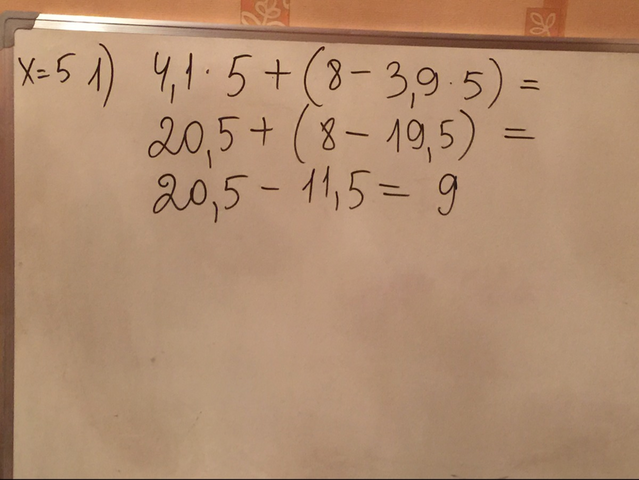 x=5 1) 4,1·5+(8-3,9·5)=
20,5+(8-19,5)=
20,5-11,5= 9